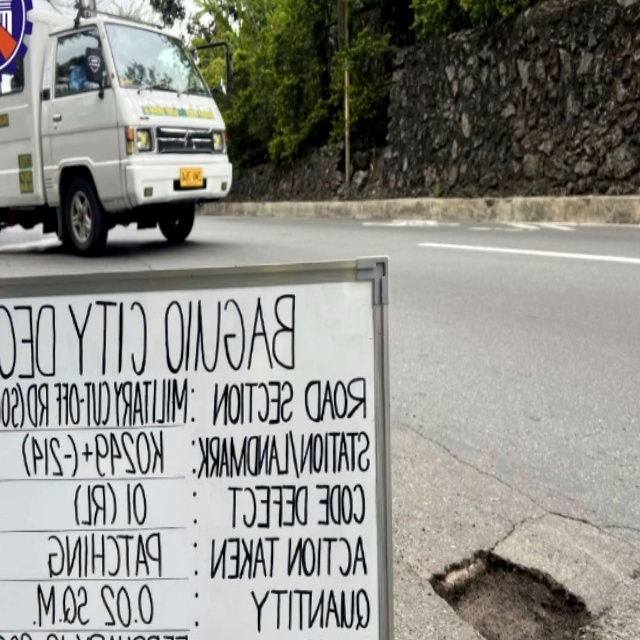 BAGUIO CITY DEO
ROAD SECTION : MILITARY CUT-OFF RD (SO
STATION/LANDMARK : K0249+(-214)
CODE DEFECT : 01 (RL)
ACTION TAKEN : PATCHING
QUANTITY : 0.02 SQ.M.